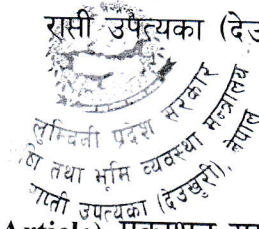 राप्ती उपत्यका (देउ
लुम्बिनी प्रदेश सरकार
तथा भूमि व्यवस्था मन्त्रालय
राप्ती उपत्यका (देउखुरी), नेपाल
Article) प्रकाशन